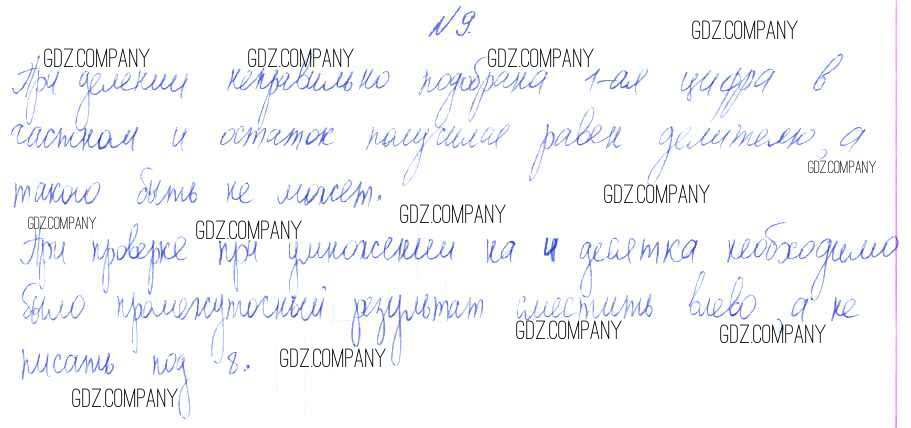 №9.
GDZ.COMPANY
GDZ.COMPANY GDZ.COMPANY GDZ.COMPANY
При делении неправильно подобрана 1-ая цифра в
частном и остаток получился равен делителю, а
GDZ.COMPANY
такого быть не может.
GDZ.COMPANY
GDZ.COMPANY
GDZ.COMPANY GDZ.COMPANY
При проверке при умножении на 4 десятка необходимо
было промежуточный результат сместить влево, а не
GDZ.COMPANY GDZ.COMPANY
писать под 8.
GDZ.COMPANY
GDZ.COMPANY